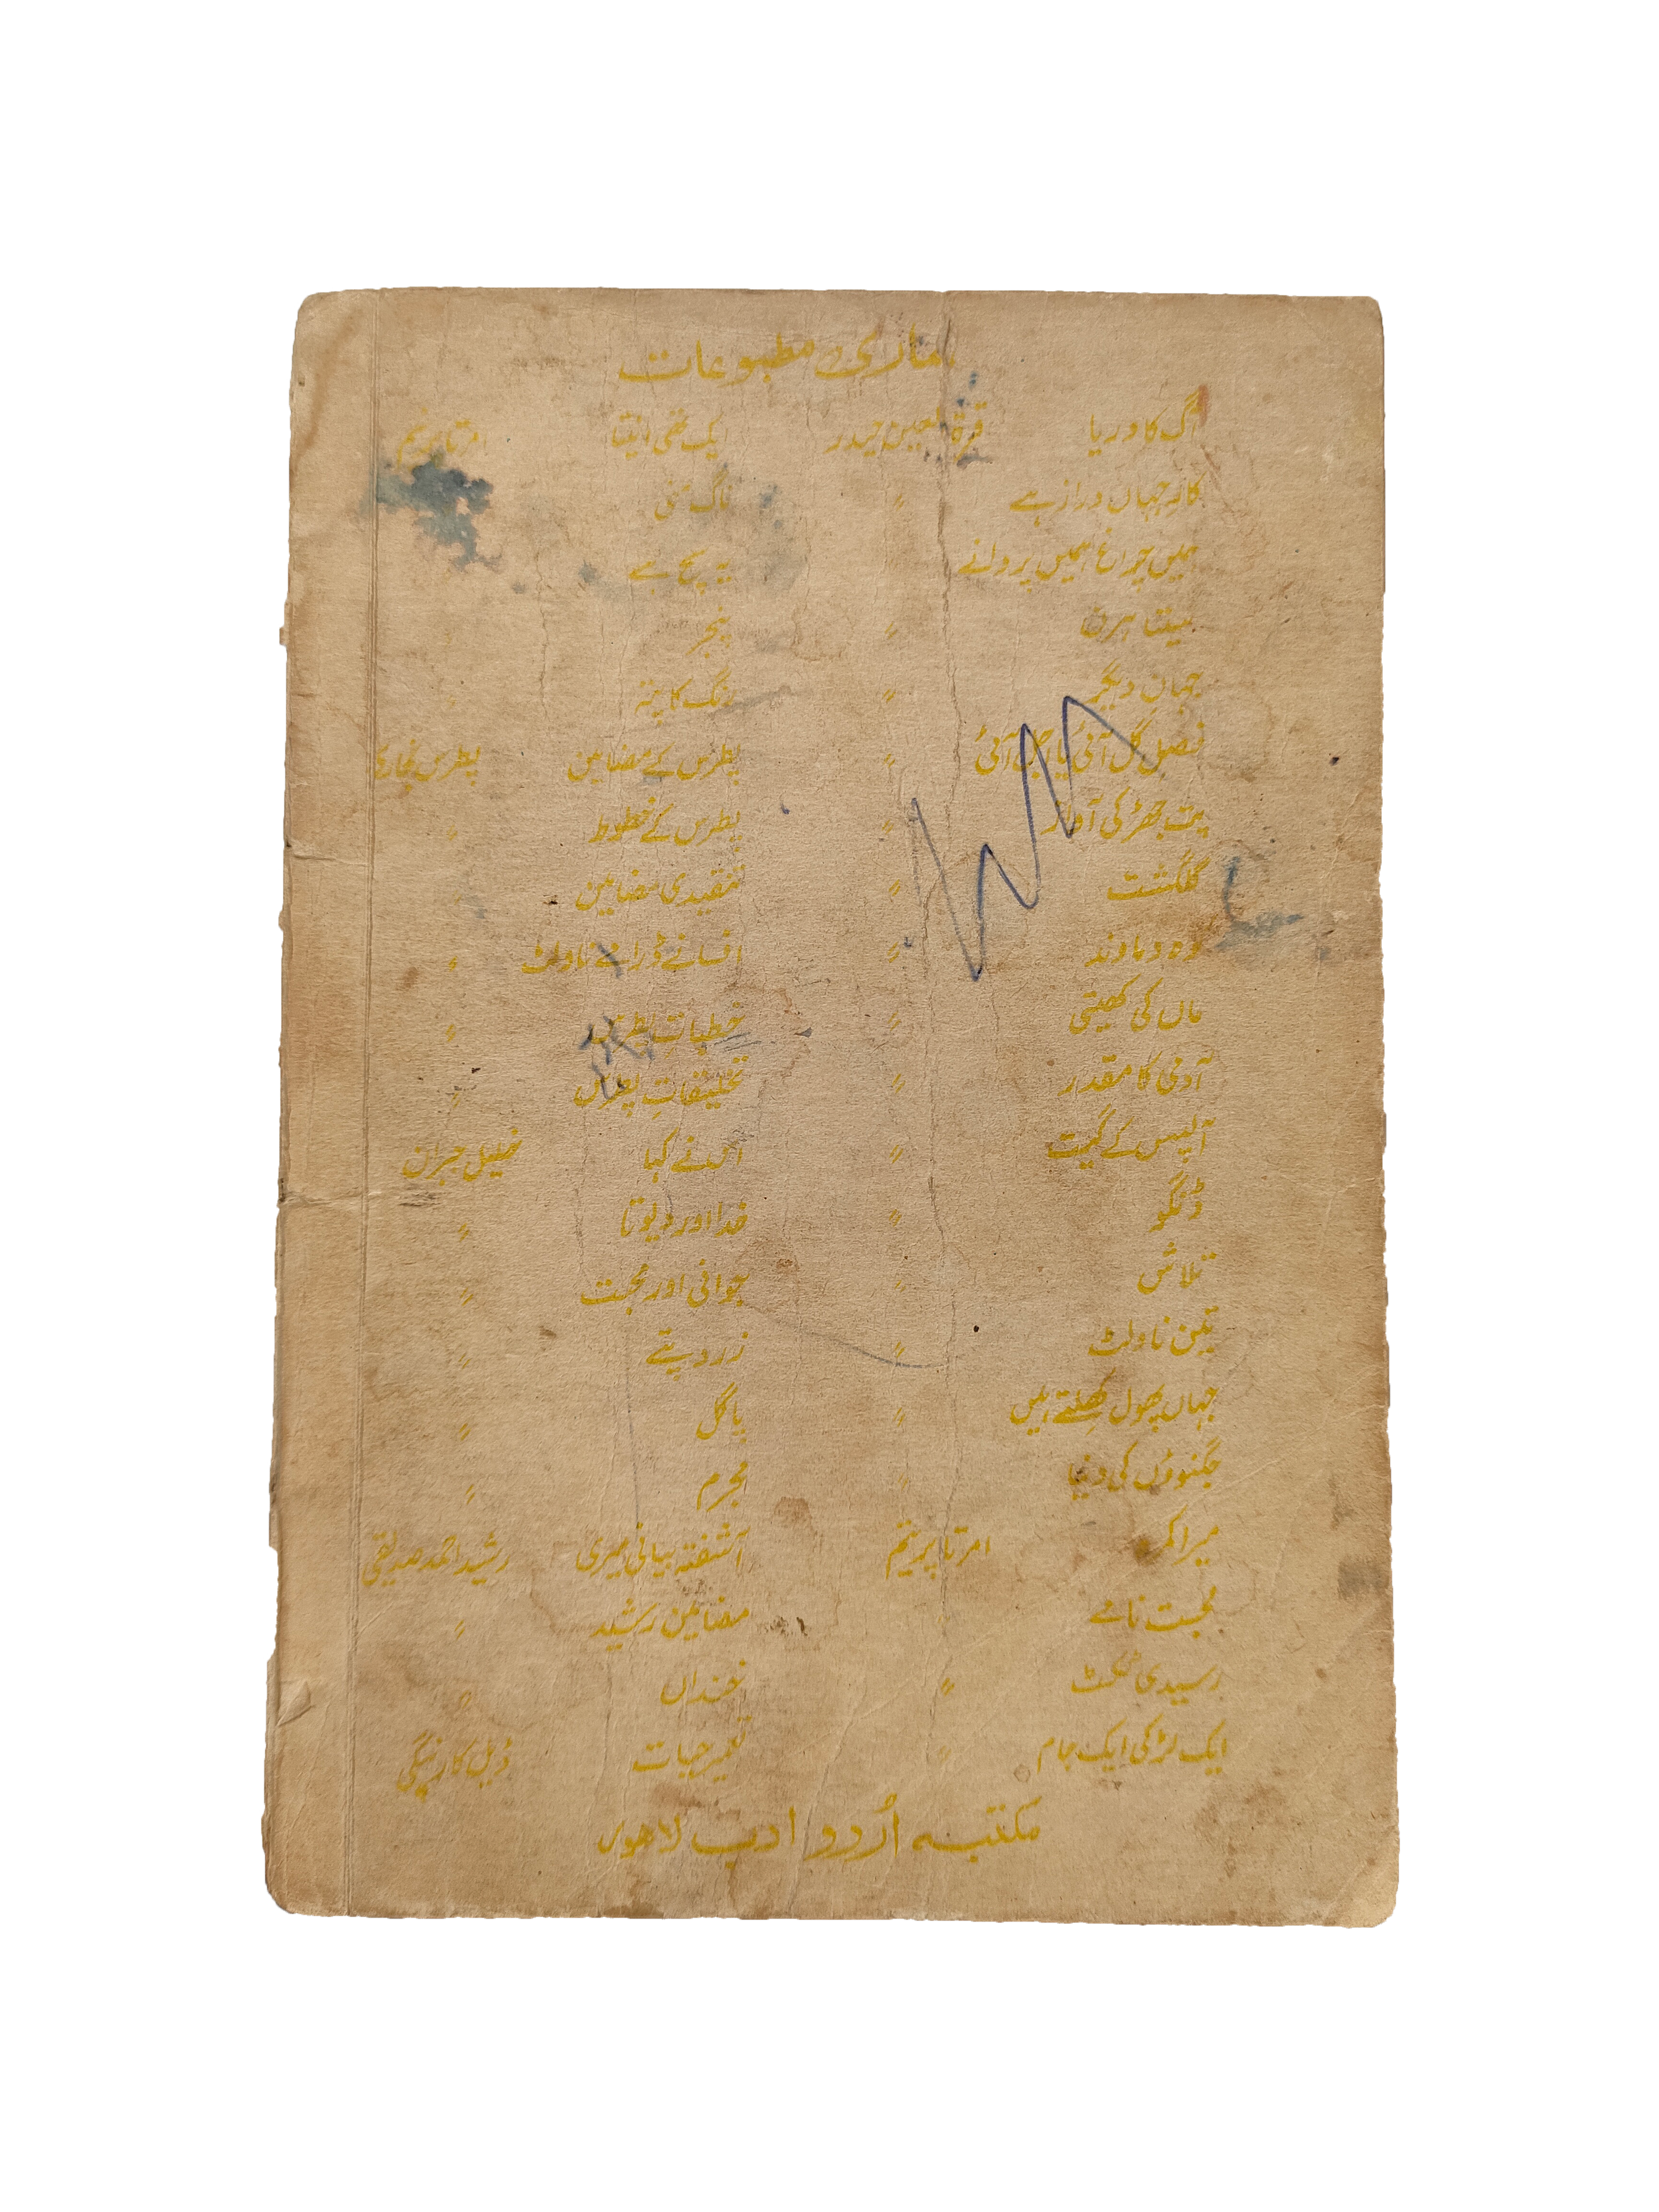 ہماری مطبوعات
آگ کا دریا قرۃ العین حیدر ایک تھی انیتا امرتا پریتم
کارِ جہاں دراز ہے " ناگ منی
ہمیں چراغ ہمیں پروانے یہ سچ ہے
سیتا ہرن " پنجر "
جہانِ دیگر " رنگ کا پتہ "
فصلِ گل آئی یا اجل آئی " پطرس کے مضامین پطرس بخاری
پت جھڑ کی آواز " پطرس کے خطوط "
گلگشت " تنقیدی مضامین "
کوہ دماوند " افسانے ڈرامے ناولٹ "
ماں کی کھیتی " خطباتِ پطرس "
آدمی کا مقدر " تخلیقاتِ پطرس "
آلپس کے گیت " اس نے کہا خلیل جبران
ڈنگو " خدا اور دیوتا "
تلاش " جوانی اور محبت "
تین ناولٹ " زرد پتے "
جہاں پھول کھلتے ہیں " پاگل "
جگنوؤں کی دنیا " مجرم "
میرا کمرہ امرتا پریتم آشفتہ بیانی میری رشید احمد صدیقی
محبت نامے " مضامین رشید "
رسیدی ٹکٹ " خنداں "
ایک لڑکی ایک جام " تعمیر حیات ڈیل کارنیگی
مکتبہ اُردو ادب لاہور